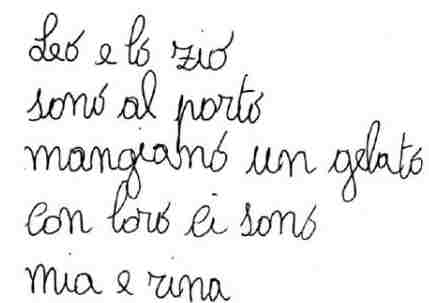 Leo e lo zio
sono al porto
mangiano un gelato
con loro ci sono
mia e rina